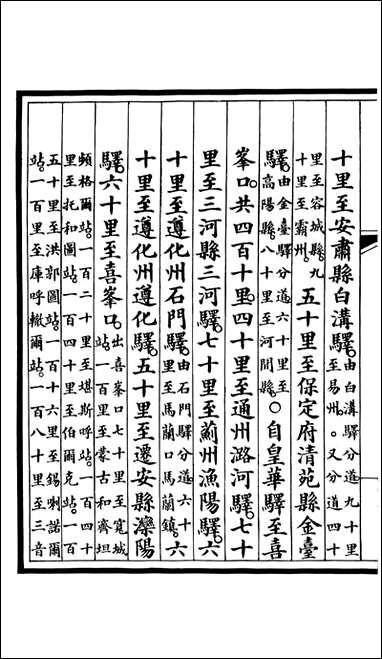 十里至安肅縣白溝驛。由白溝驛分道九十里至易州。又分道四十
里至容城縣。九十里至霸州。五十里至保定府清苑縣金臺
驛。由金臺驛分道六十里至高陽縣。八十里至河間縣。○自皇華驛至喜
峯口。共四百十里。四十里至通州潞河驛。七十
里至三河縣三河驛。七十里至薊州漁陽驛。六
十里至遵化州石門驛。由石門驛分道六十里至馬蘭口馬蘭鎮。六
十里至遵化州遵化驛。五十里至遷安縣灤陽
驛。六十里至喜峯口。出喜峯口七十里至寬城站。一百里至蒙古和齊坦
頓格爾站。一百二十里至堪斯呼站。一百四十
里至托和圖站。一百四十里至伯爾克站。一百
五十里至洪郭圖站。一百十六里至錫喇諾爾
站。一百里至庫呼轍爾站。一百八十里至三音